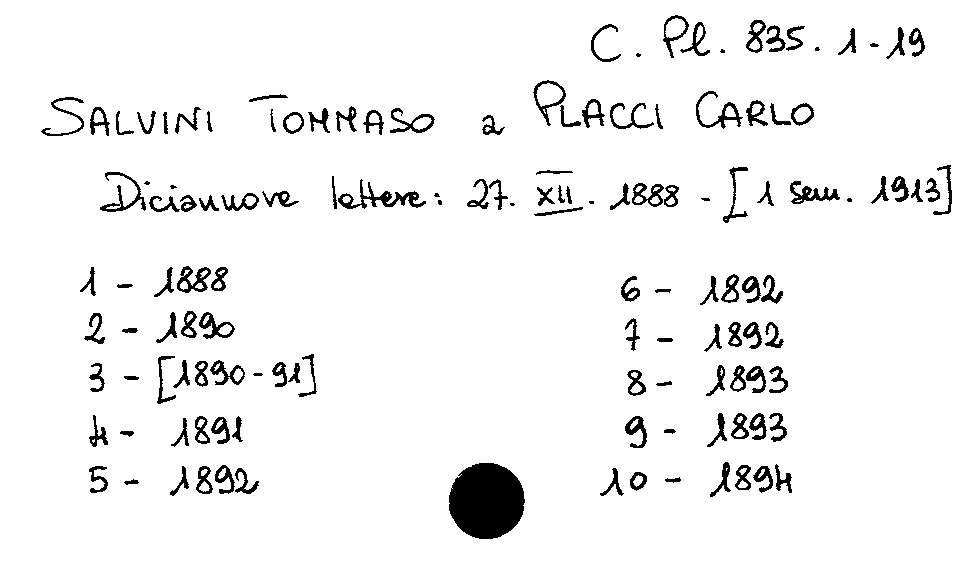 C. Pl. 835. 1-19
SALVINI TOMMASO a PLACCI CARLO
Diciannove lettere: 27. XII. 1888 - [1 sem. 1913]
1 - 1888
2 - 1890
3 - [1890-91]
4 - 1891
5 - 1892
6 - 1892
7 - 1892
8 - 1893
9 - 1893
10 - 1894